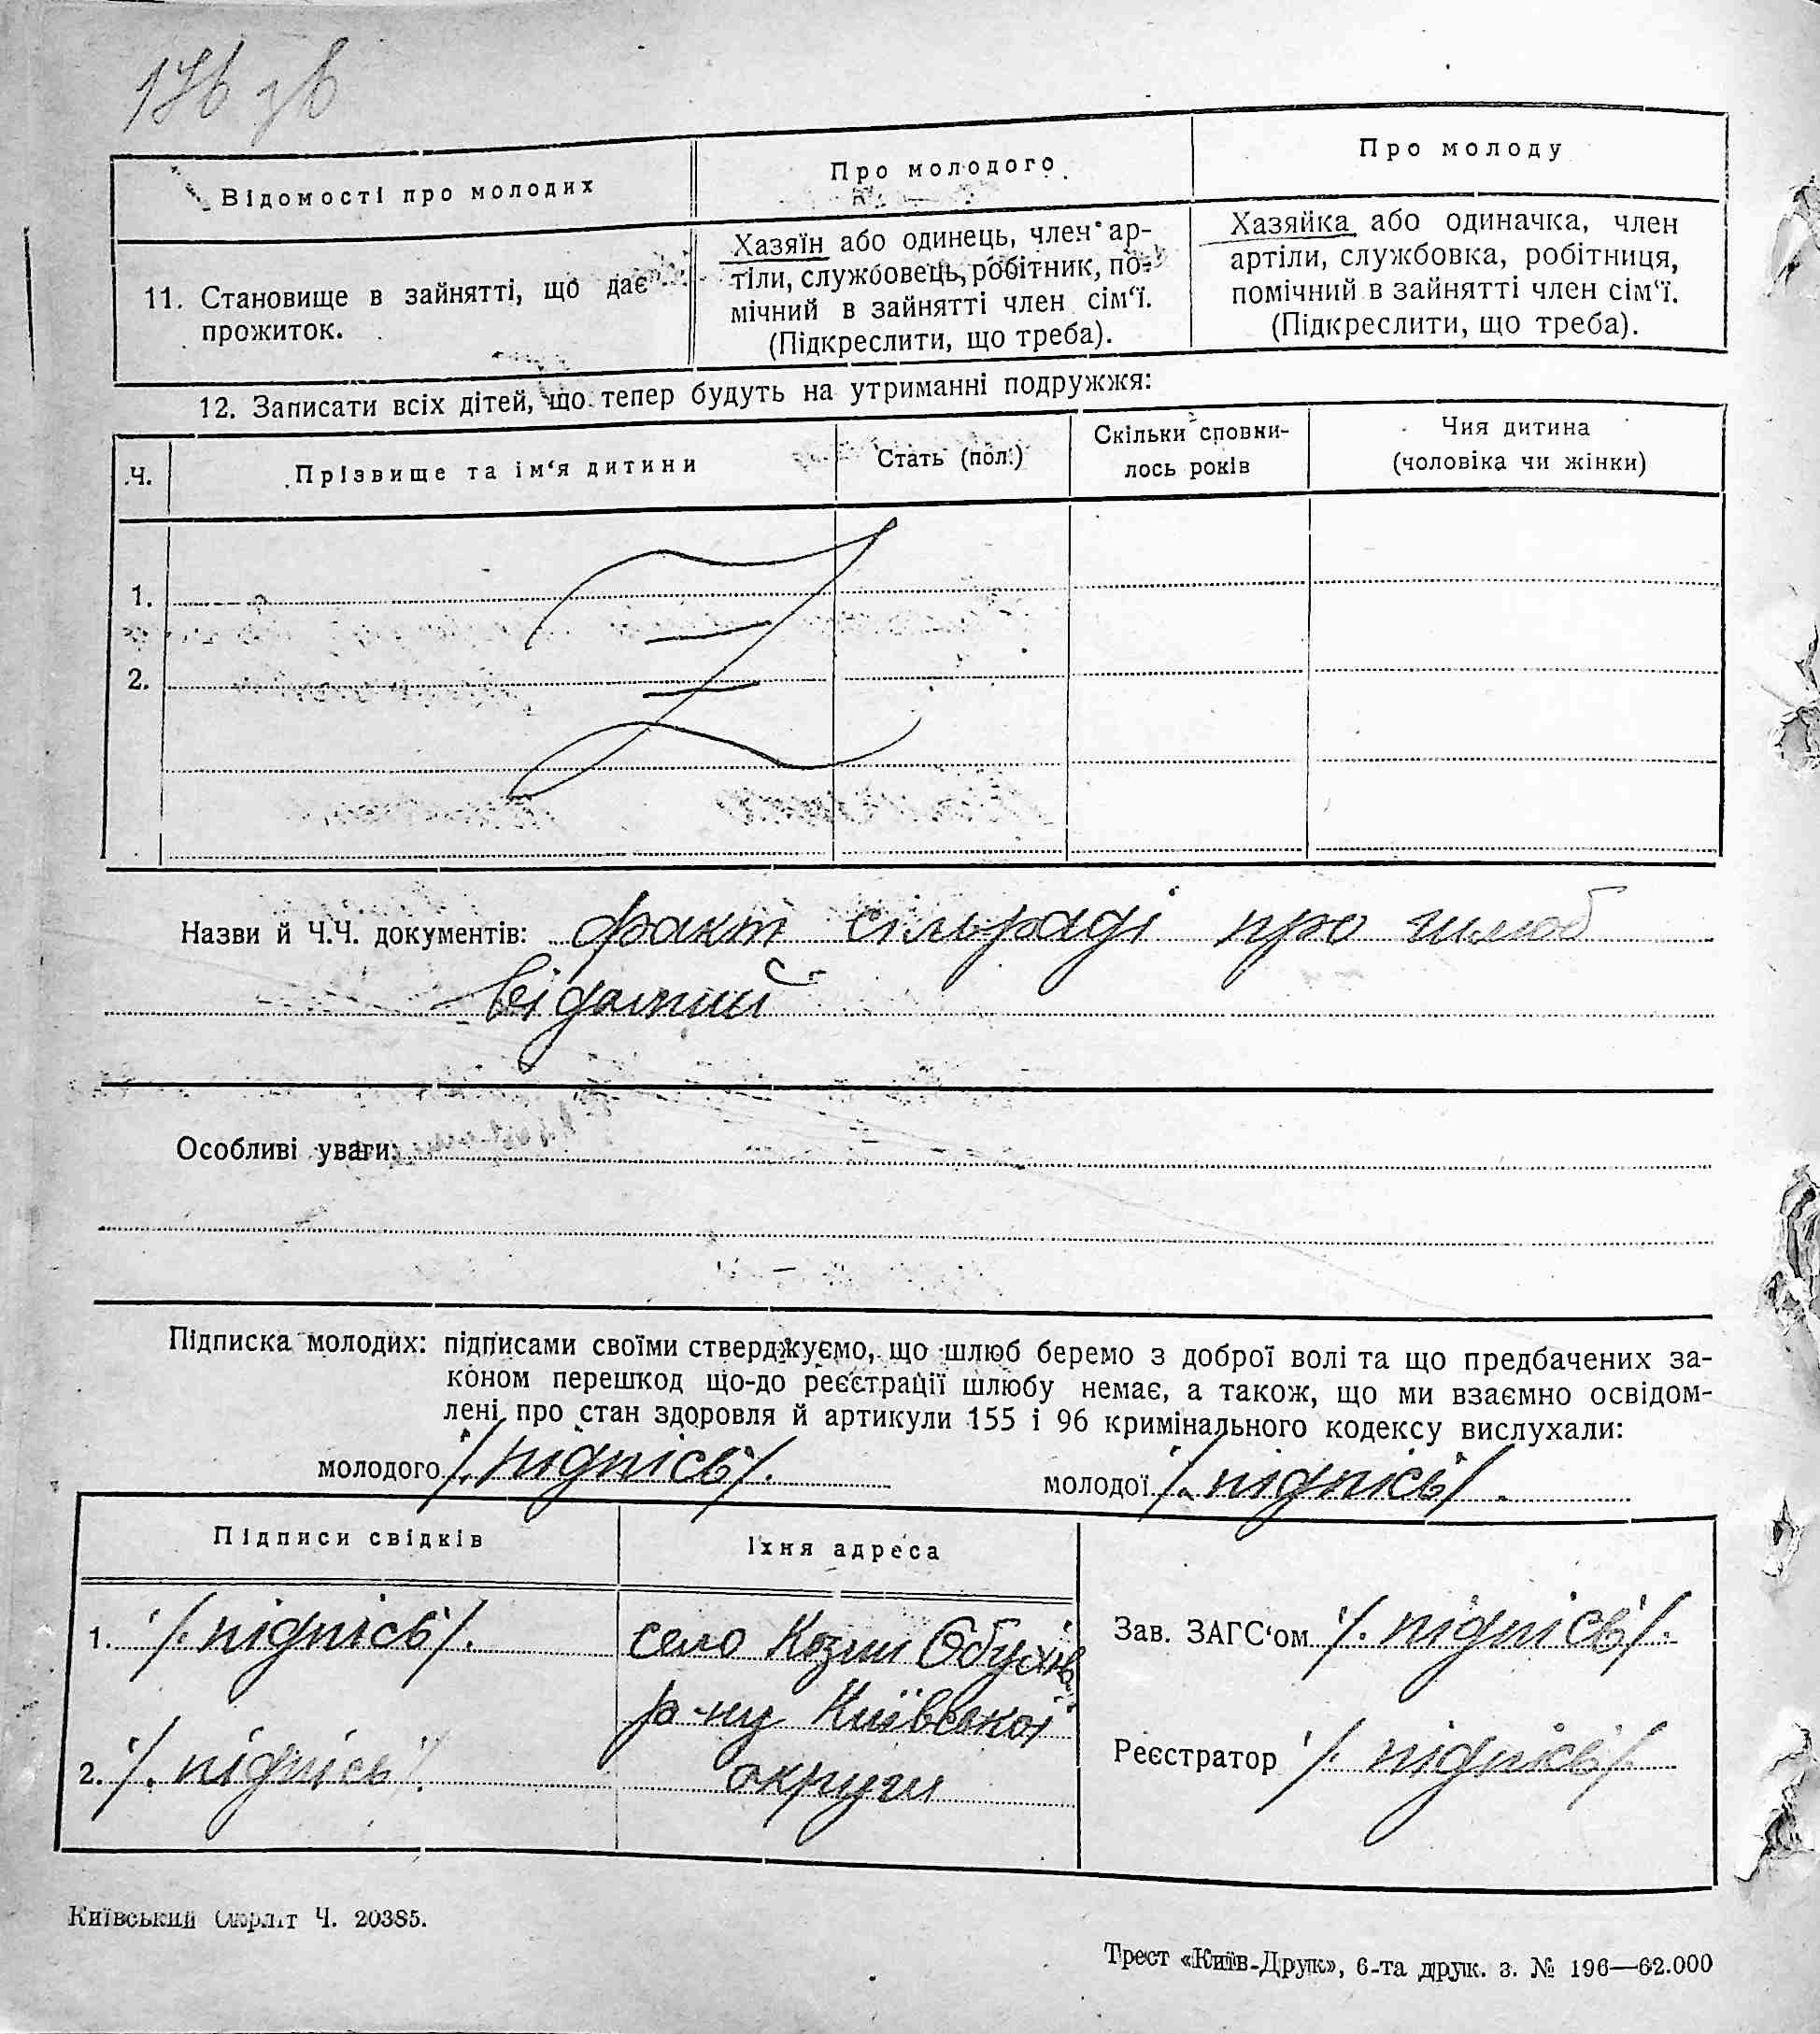 176 зв
Відомості про молодих
Про молодого
Про молоду
11. Становище в зайнятті, що дає
прожиток.
Хазяїн або одинець, член ар-
тіли, службовець, робітник, по-
мічний в зайнятті член сім‘ї.
(Підкреслити, що треба).
Хазяйка або одиначка, член
артіли, службовка, робітниця,
помічний в зайнятті член сім‘ї.
(Підкреслити, що треба).
12. Записати всіх дітей, що тепер будуть на утриманні подружжя:
Ч.
Прізвище та ім‘я дитини
Стать (пол.)
Скільки сповни-
лось років
Чия дитина
(чоловіка чи жінки)
1.
2.
Назви й Ч.Ч. документів: факт сільраді про шлюб
відомий
Особливі уваги:
Підписка молодих: підписами своїми стверджуємо, що шлюб беремо з доброї волі та що предбачених за-
коном перешкод що-до реєстрації шлюбу немає, а також, що ми взаємно освідом-
лені про стан здоровля й артикули 155 і 96 кримінального кодексу вислухали:
молодого /. підпісь/.
молодої /. підпісь/.
Підписи свідків
Їхня адреса
1. /. підпісь/.
село Козин Обухів
р-ну Київської
округи
2. /. підпісь/.
Зав. ЗАГС‘ом /. підпісь/.
Реєстратор /. підпісь/.
Київський Окрліт Ч. 20385.
Трест «Київ-Друк», 6-та друк. з. № 196—62.000